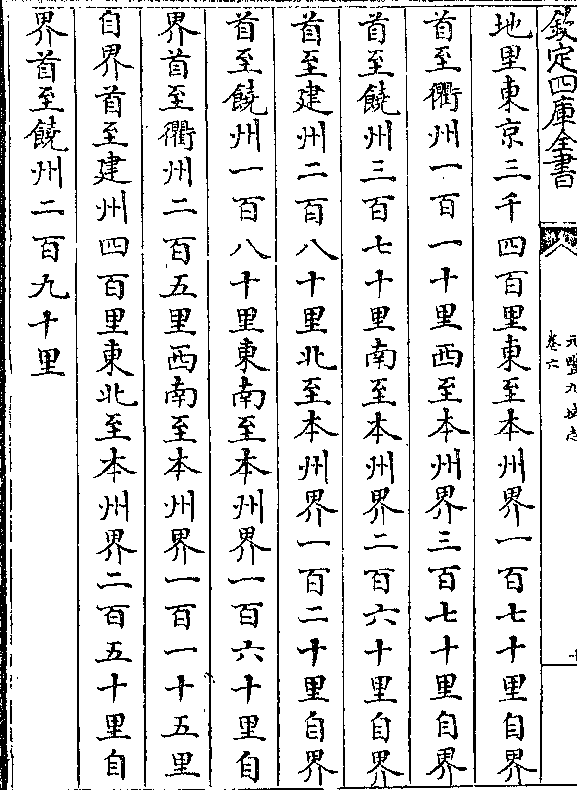 欽定四庫全書
元豐九域志
卷六
地里東京三千四百里東至本州界一百七十里自界
首至衢州一百一十里西至本州界三百七十里自界
首至饒州三百七十里南至本州界二百六十里自界
首至建州二百八十里北至本州界一百二十里自界
首至饒州一百八十里東南至本州界一百六十里自
界首至衢州二百五里西南至本州界一百一十五里
自界首至建州四百里東北至本州界二百五十里自
界首至饒州二百九十里